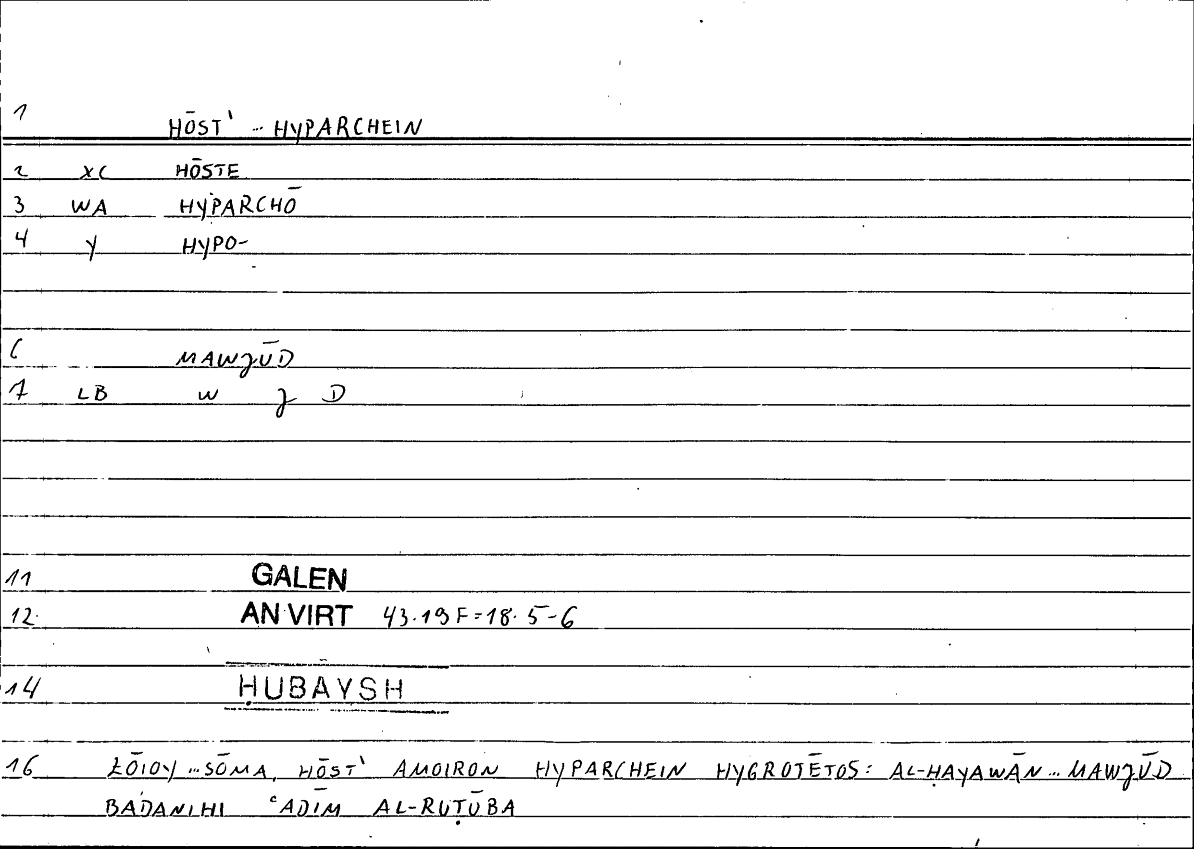 1 HŌST' ... HYPARCHEIN
2 XC HŌSTE
3 WA HYPARCHŌ
4 Y HYPO-
6 MAWJŪD
7 LB W J D
11 GALEN
12 AN VIRT 43.19 F = 18.5-6
14 ḤUBAYSH
16 ZŌIOY ... SŌMA, HŌST' AMOIRON HYPARCHEIN HYGROTĒTOS: AL-ḤAYAWĀN ... MAWJŪD
BADANIHI ʿADĪM AL-RUṬŪBA